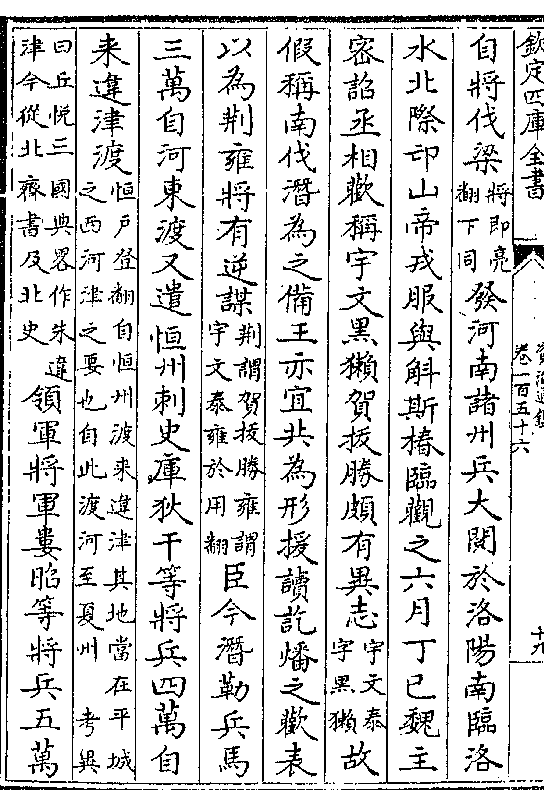 欽定四庫全書
資治通鑑
卷一百五十六
十九
自將伐梁將即亮翻下同發河南諸州兵大閱於洛陽南臨洛
水北際邙山帝戎服與斛斯椿臨觀之六月丁巳魏主
密詔丞相歡稱宇文黑獺賀拔勝頗有異志宇文泰字黑獺故
假稱南伐潛為之備王亦宜共為形援讀訖燔之歡表
以為荆雍將有逆謀荆謂賀拔勝雍謂宇文泰雍於用翻臣今潛勒兵馬
三萬自河東渡又遣恒州刺史庫狄干等將兵四萬自
来違津渡恒户登翻自恒州渡来違津其地當在平城之西河津之要也自此渡河至夏州 考異
曰丘悅三國典畧作朱違津今從北齊書及北史領軍將軍婁昭等將兵五萬